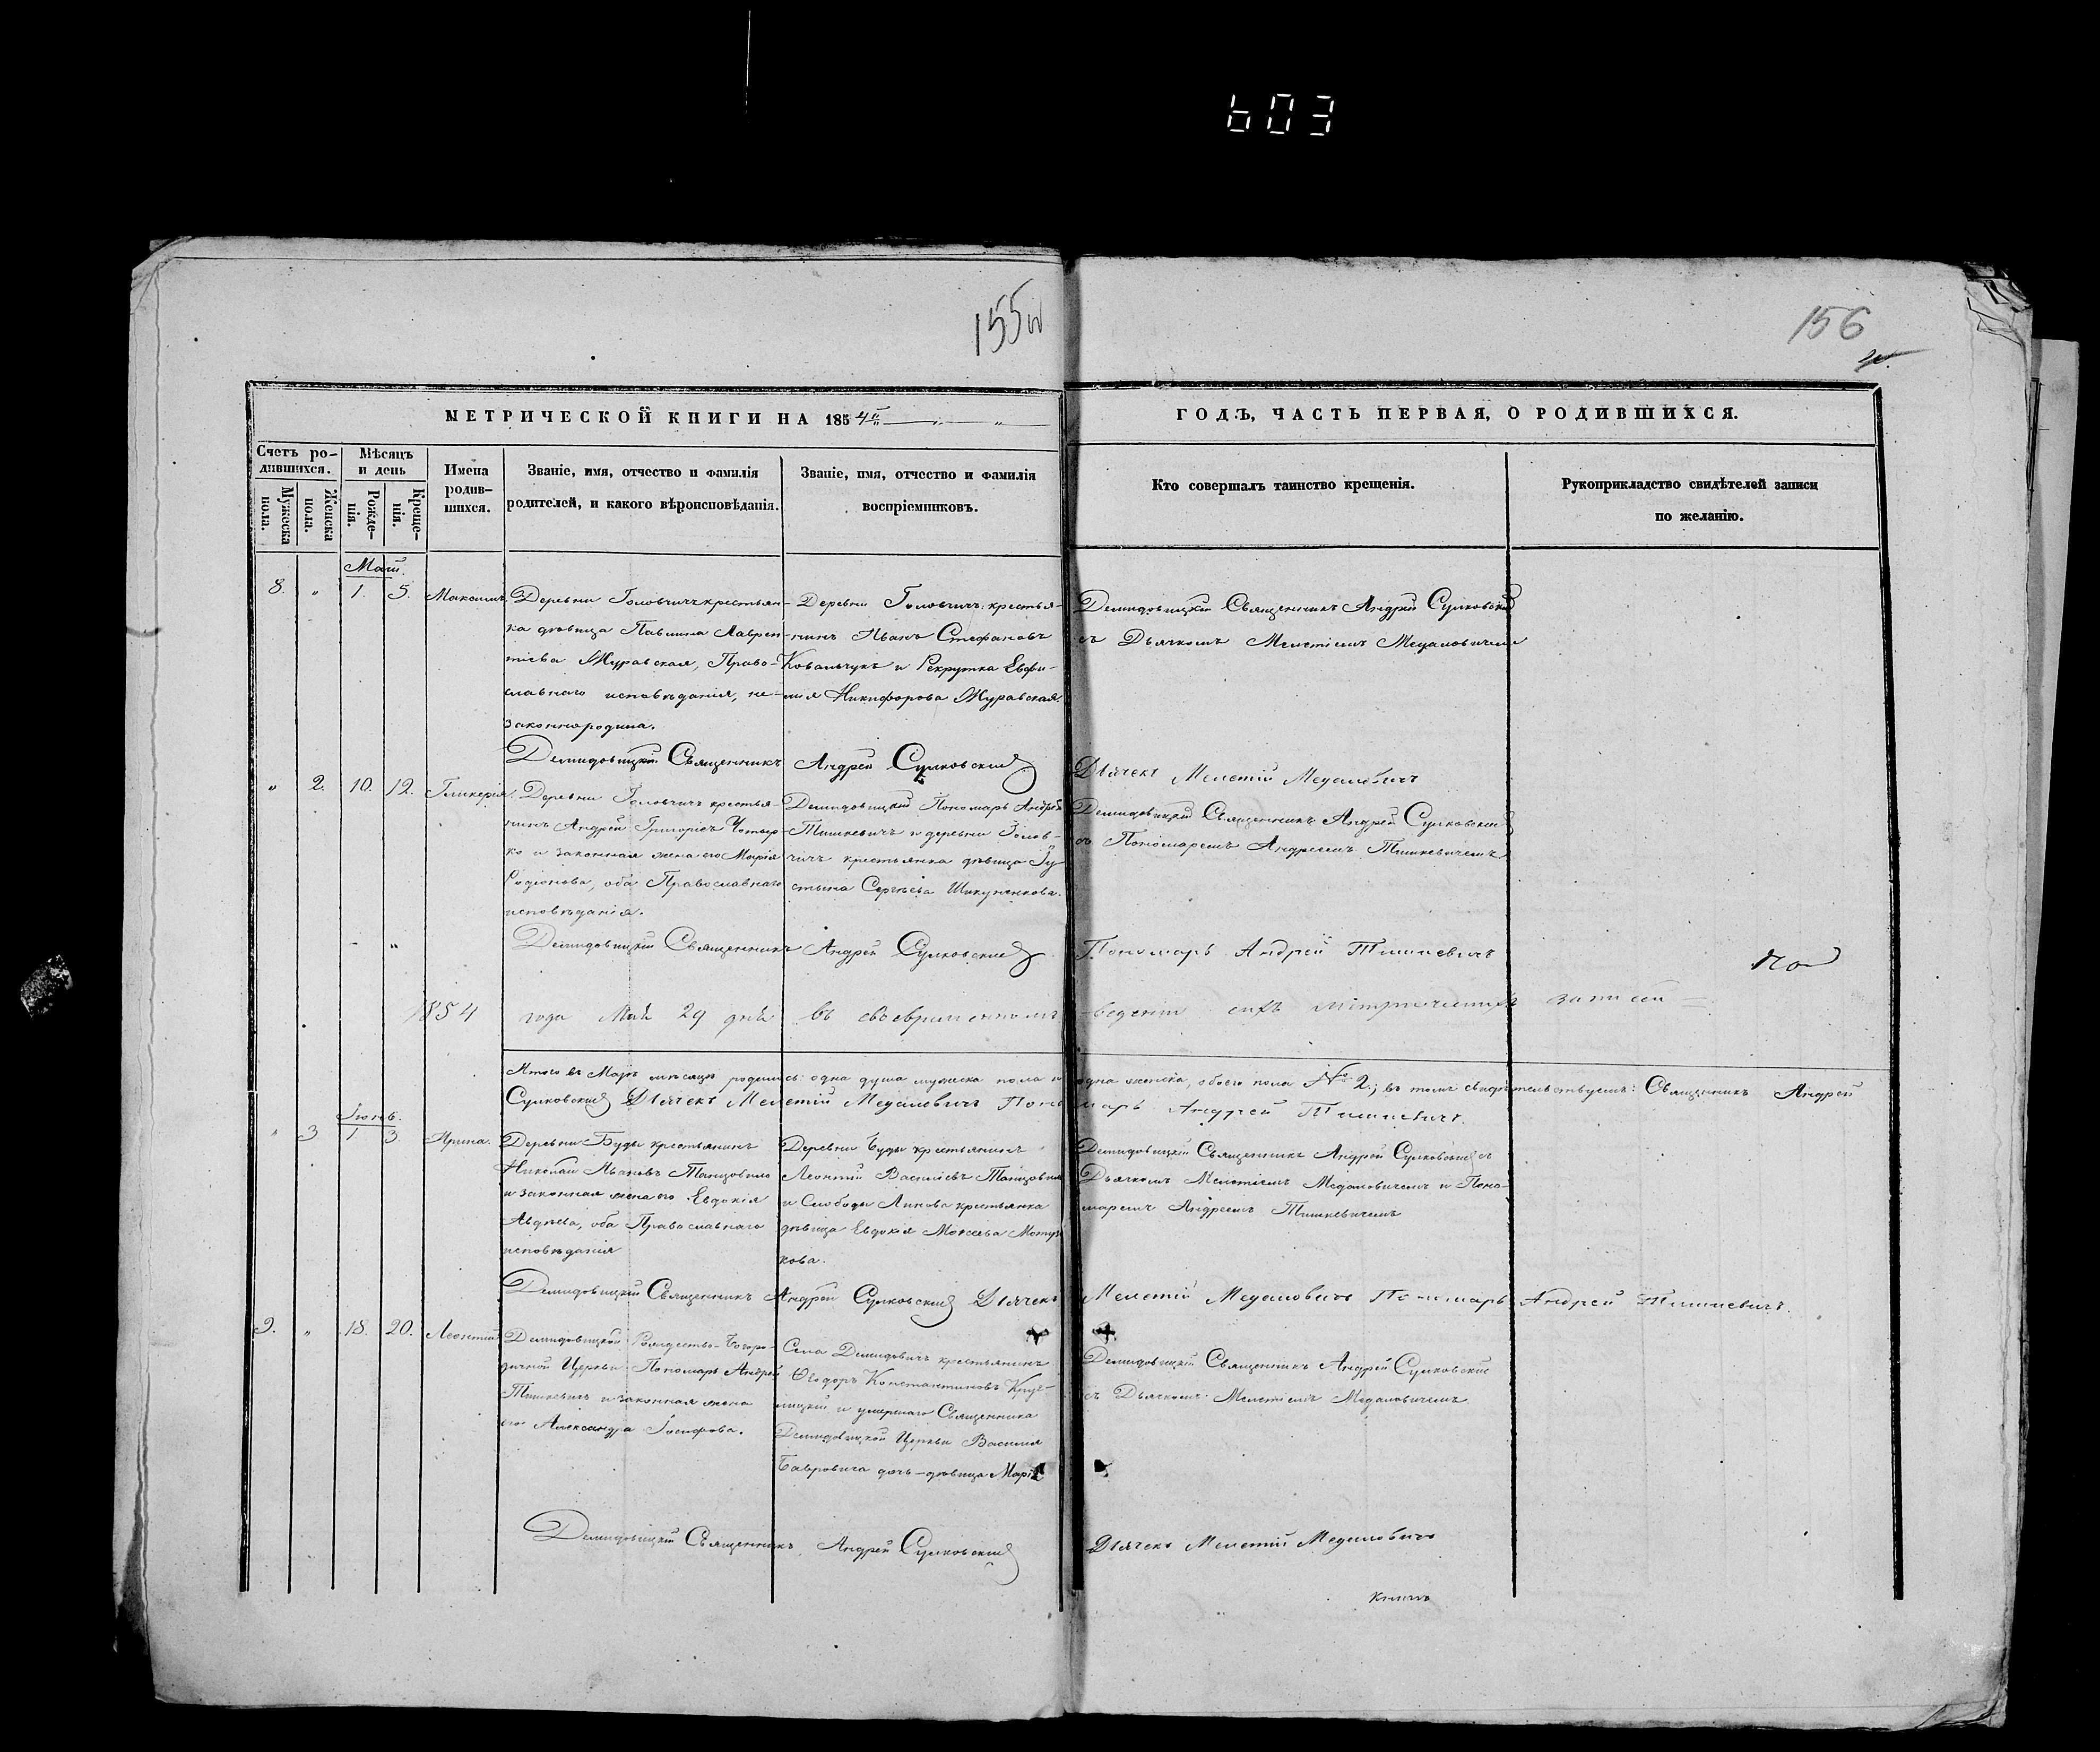 603
155
156
МЕТРИЧЕСКОЙ КНИГИ НА 1854
ГОДЪ, ЧАСТЬ ПЕРВАЯ, О РОДИВШИХСЯ.
Счетъ ро-
дившихся.
Мужеска
пола.
Женска
пола.
Мѣсяцъ
и день
Рожде-
нія.
Креще-
нія.
Имена
родив-
шихся.
Званіе, имя, отчество и фамилія
родителей, и какого вѣроисповѣданія.
Званіе, имя, отчество и фамилія
воспріемниковъ.
Кто совершалъ таинство крещенія.
Рукоприкладство свидѣтелей записи
по желанію.
Маій.
8. " 1. 5. Максимъ.
Деревни Головчичъ крестьян-
ка дѣвица Павлина Лаврен-
тіева Журавская, Право-
славнаго исповѣданія, не-
законнородила.
Деревни Головчичъ крестья-
нинъ Иванъ Стефановъ
Ковальчукъ и Рекрутка Евфи-
мія Никифорова Журавская.
Демидовицкій Священникъ Андрей Сулковскій
съ Дьячкомъ Мелетіемъ Медаловичемъ
Демидовицкій Священникъ Андрей Сулковскій
Дьячекъ Мелетій Медаловичъ
" 2. 10. 12. Гликерія.
Деревни Головчичъ крестья-
нинъ Андрей Григоріевъ
ко и законная жена его Марія
Родіонова, оба Православнаго
исповѣданія.
Демидовицкій Пономарь Андрей
Тишкевичъ и деревни Голов-
чичъ крестьянка дѣвица Іу-
стина Сергѣева Шикуненкова.
Демидовицкій Священникъ Андрей Сулковскій
съ Пономаремъ Андреемъ Тишкевичемъ
Демидовицкій Священникъ Андрей Сулковскій
Пономарь Андрей Тишкевичъ
По
1854 года Маія 29 дня въ своевременномъ веденіи сихъ метрическихъ записей
Итого въ Маіѣ мѣсяцѣ родились: одна душа мужеска пола и одна женска, обоего пола № 2; въ томъ свидѣтельствуемъ: Священникъ Андрей
Сулковскій Дьячекъ Мелетій Медаловичъ Пономарь Андрей Тишкевичъ.
Іюнь.
" 3 1 3 Ирина.
Деревни Буды крестьянинъ
Николай Ивановъ
и законная жена его Евдокія
Авдѣева, оба Православнаго
исповѣданія
Деревни Буды крестьянинъ
Леонтій Василіевъ
и Слободы крестьянка
дѣвица Евдокія Моисеева
кова.
Демидовицкій Священникъ Андрей Сулковскій съ
Дьячкомъ Мелетіемъ Медаловичемъ и Поно-
маремъ Андреемъ Тишкевичемъ
Демидовицкій Священникъ Андрей Сулковскій Дьячекъ Мелетій Медаловичъ Пономарь Андрей Тишкевичъ.
9. " 18. 20. Леонтій
Демидовицкой Рождество-Богоро-
дичной Церкви Пономарь Андрей
Тишкевичъ и законная жена
его Александра Іосифова.
Села Демидовичъ крестьянинъ
Ѳеодоръ Константиновъ Круг-
лицкій и умершаго Священника
Демидовицкой Церкви Василія
Бавровича дочь-дѣвица Марія
Демидовицкій Священникъ Андрей Сулковскій
съ Дьячкомъ Мелетіемъ Медаловичемъ
Демидовицкій Священникъ Андрей Сулковскій
Дьячекъ Мелетій Медаловичъ